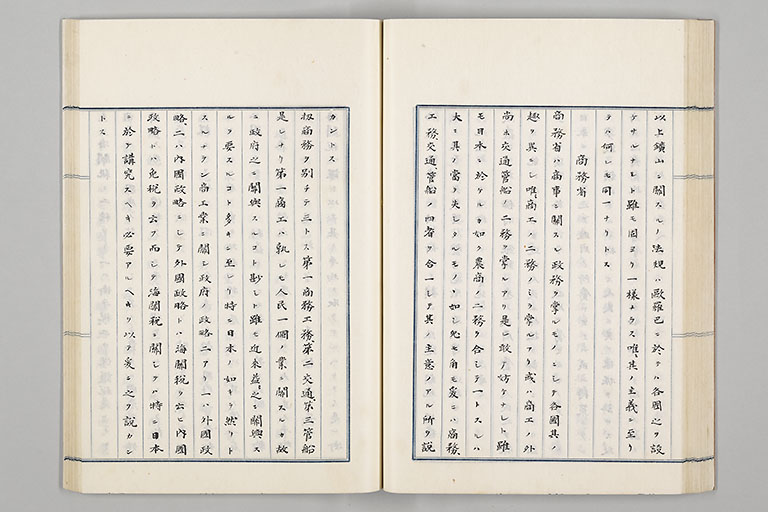 以上鑛山ニ關スルノ法規ハ歐羅巴ニ於テハ各國之ヲ設
ケサルナシト雖モ固ヨリ一様ナラス唯其ノ主義ニ至リ
テハ何レモ同一ナリトス
商務省
商務省ハ商事ニ關スル政務ヲ掌ルモノニシテ各國其ノ
趣ヲ異ニシ唯商工ノ二務ノミヲ掌ルアリ或ハ商工ノ外
尚ホ交通管船ノ二務ヲ掌ルアリ是レ敢テ妨ケナシト雖
モ日本ニ於ケルカ如ク農商ノ二務ヲ合シテ一トスルハ
大ニ其ノ當ヲ失シタルモノヽ如シ兎モ角モ爰ニハ商務
工務交通管船ノ四者ヲ合一シテ其ノ主意ノアル所ヲ説
カントス
扨商務ヲ別チテ三トス第一商務工務第二交通第三管船
是レナリ第一商工ハ孰レモ人民一個ノ業ニ關スルカ故
ニ政府之ニ關與スルコト尠シト雖モ近来益之ニ關與ス
ルヲ要スルコト多キニ至レリ特ニ日本ノ如キヲ然リト
スルナラン商工業ニ關シ政府ノ政略二アリ一ハ外國政
略、二ハ内國政略ニシテ外國政略トハ海關税ヲ云ヒ内國
政略トハ免税ヲ云フ而シテ海關税ニ關シテハ特ニ日本
ニ於テ講究スヘキ必要アルヘキヲ以テ爰ニ之ヲ説カン
トス